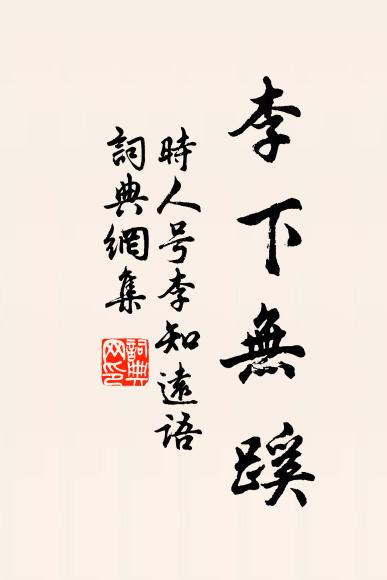 李下無蹊
時人号李知遠語
詞典網集
詞典網印